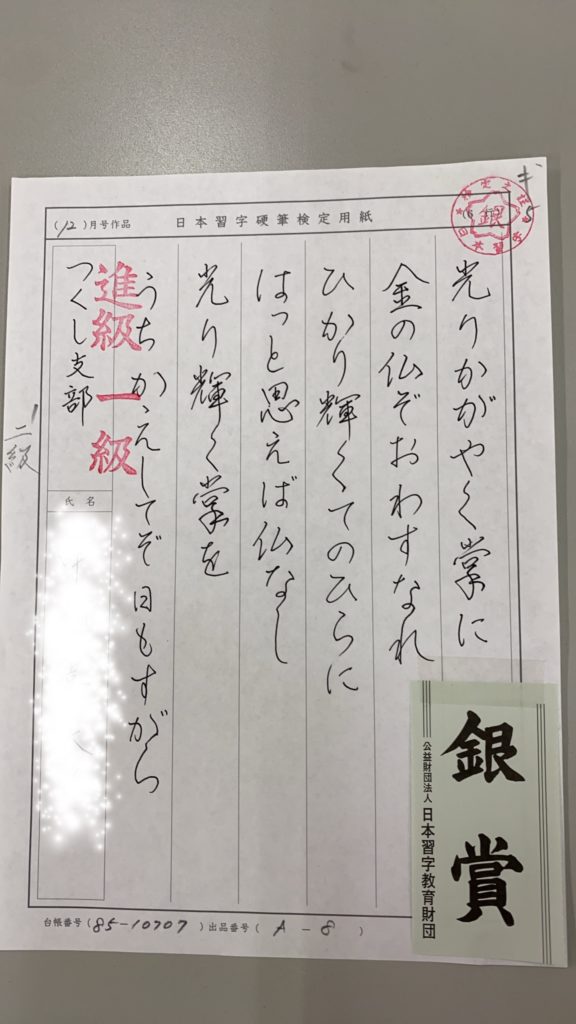 (12)月号作品
日本習字硬筆検定用紙
銀
光りかがやく掌に
金の仏ぞおわすなれ
ひかり輝くてのひらに
はっと思えば仏なし
光り輝く掌を
うちかえしてぞ日もすがら
進級一級
つくし支部
二級
氏名
台帳番号(85-10707)出品番号(A-8)
銀賞
公益財団法人 日本習字教育財団